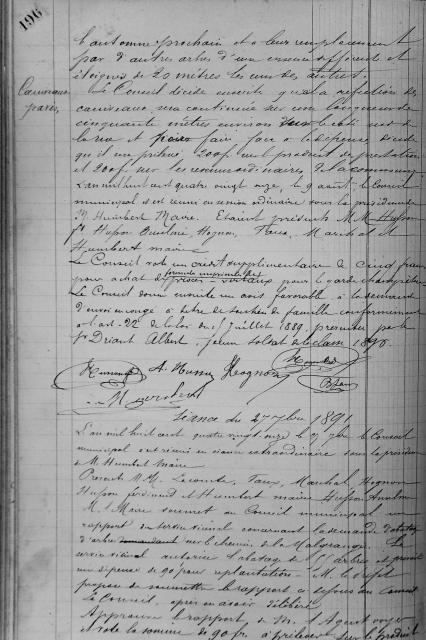 196
l'automne prochain et a leur remplacement
par d'autres arbres d'une essence différente et
éloignés de 20 mètres les uns des autres.
Caniveaux
pavés,
Le Conseil décide ensuite que la réfection des
caniveaux sera continuée sur une longueur de
cinquante mètres environ
la rue et pour faire face à la dépense décide
qu'il sera prélevé 200f sur le produit de prestations
et 200f sur les ressources ordinaires de la commune
L'an mil huit cent quatre vingt onze, le 9 août, le Conseil
municipal s'est réuni en session ordinaire sous la présidence
M. Humbert Maire. Etaient présents M.M. Husson
fd Husson Anselme, Hognon, Faux, Marchal et
Humbert maire
Le Conseil vote un crédit supplémentaire de cinq francs
pour achat de formules imprimées de
procès-verbaux pour le garde champêtre
Le Conseil donne ensuite un avis favorable à la demande
d'envoi en congé à titre de soutien de famille conformément
à l'art. 22 de la loi du 15 Juillet 1889, présentée par le
Sr Driant Albert, jeune soldat de la classe 1890.
A. Husson Hognon
Humbert
Séance du 27 7bre 1891
L'an mil huit cent quatre vingt onze le 27 7bre le Conseil
municipal s'est réuni en séance extraordinaire sous la présidence
de M. Humbert Maire
Présents M.M. Lecomte, Faux, Marchal, Hognon
Husson ferdinand et Humbert maire Husson Anselme
M. l'Maire soumet au Conseil municipal un
rapport du service vicinal concernant la demande d'abatage
d'arbres sur le chemin de la Malgrange. Le
service vicinal autorise l'abatage de arbres et prévoit
une dépense de 90f pour replantation. M. le Préfet
propose de soumettre le rapport ci dessus au Conseil
Le Conseil, après en avoir délibéré
Approuve le rapport de M. l'Agent voyer
et vote la somme de 90 fr. à prélever sur le produit